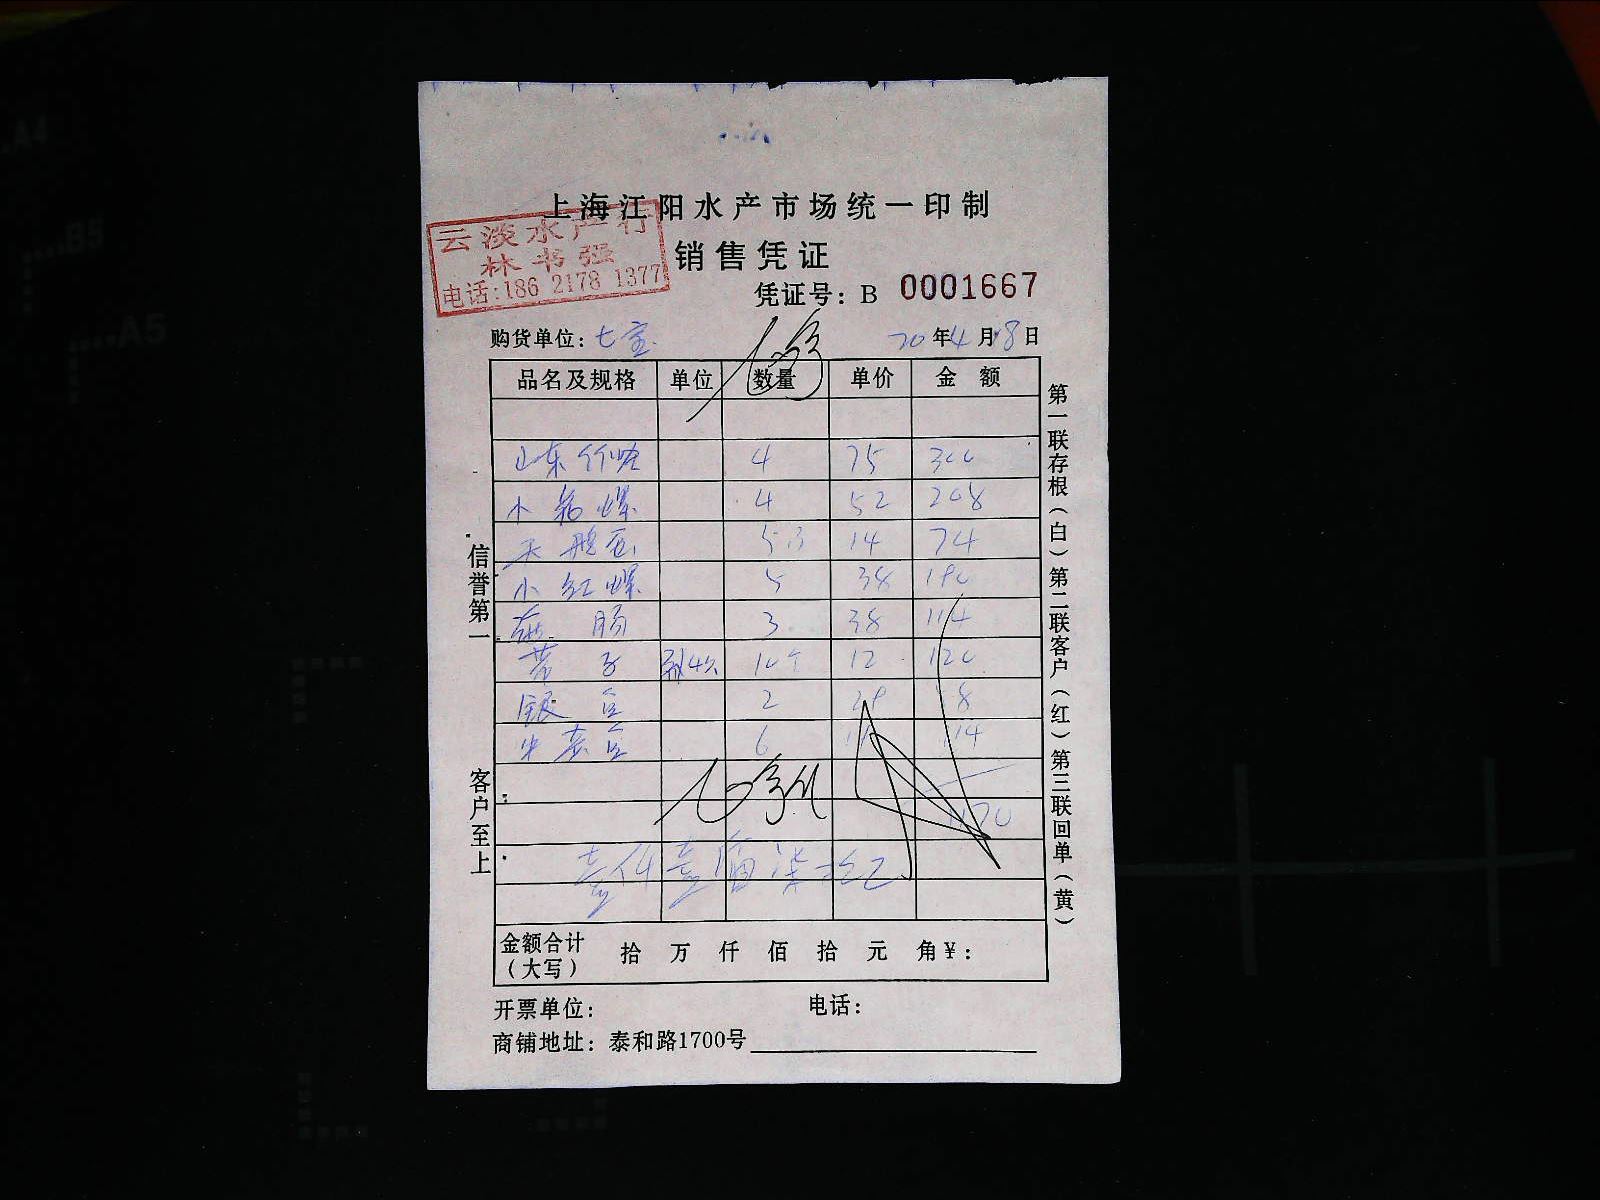 上海江阳水产市场统一印制
云淡水产行
林书强
电话:186 2178 1377
销售凭证
凭证号: B 0001667
购货单位: 七宝 20年4月18日
品名及规格 单位 数量 单价 金额
山东 4 75 300
小 螺 4 52 208
5.3 14 74
小红螺 5 38 190
肠 3 38 114
子 10个 12 120
银 2
6 114
1170
壹仟壹佰柒拾元
金额合计(大写) 拾 万 仟 佰 拾 元 角 ¥:
开票单位: 电话:
商铺地址: 泰和路1700号
信誉第一 客户至上
第一联存根(白) 第二联客户(红) 第三联回单(黄)
A4
B5
A5